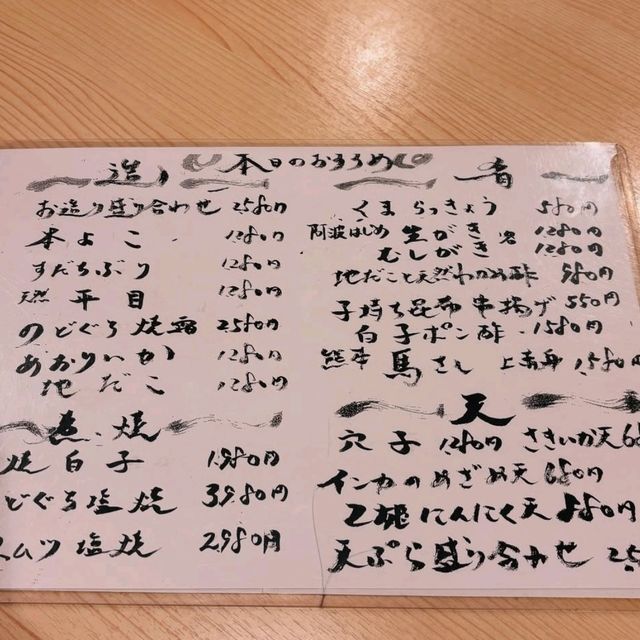 本日のおすすめ
造り
お造り盛り合わせ 2580円
本よこ 1280円
すだちぶり 1280円
天然 平目 1280円
のどぐろ焼霜 2580円
あおりいか 1280円
地だこ 1280円
煮・焼
焼白子 1980円
どぐろ塩焼 3980円
ムツ塩焼 2980円
肴
くまらっきょう 580円
阿波はじめ 生がき 1280円
むしがき 各 1280円
地だこと天然わかめ酢 980円
子持ち昆布串揚げ 550円
白子ポン酢 1580円
熊本 馬さし 上赤身 1580円
天
穴子 1280円 さきいか天
インカのめざめ天 680円
にんにく天 880円
天ぷら盛り合わせ